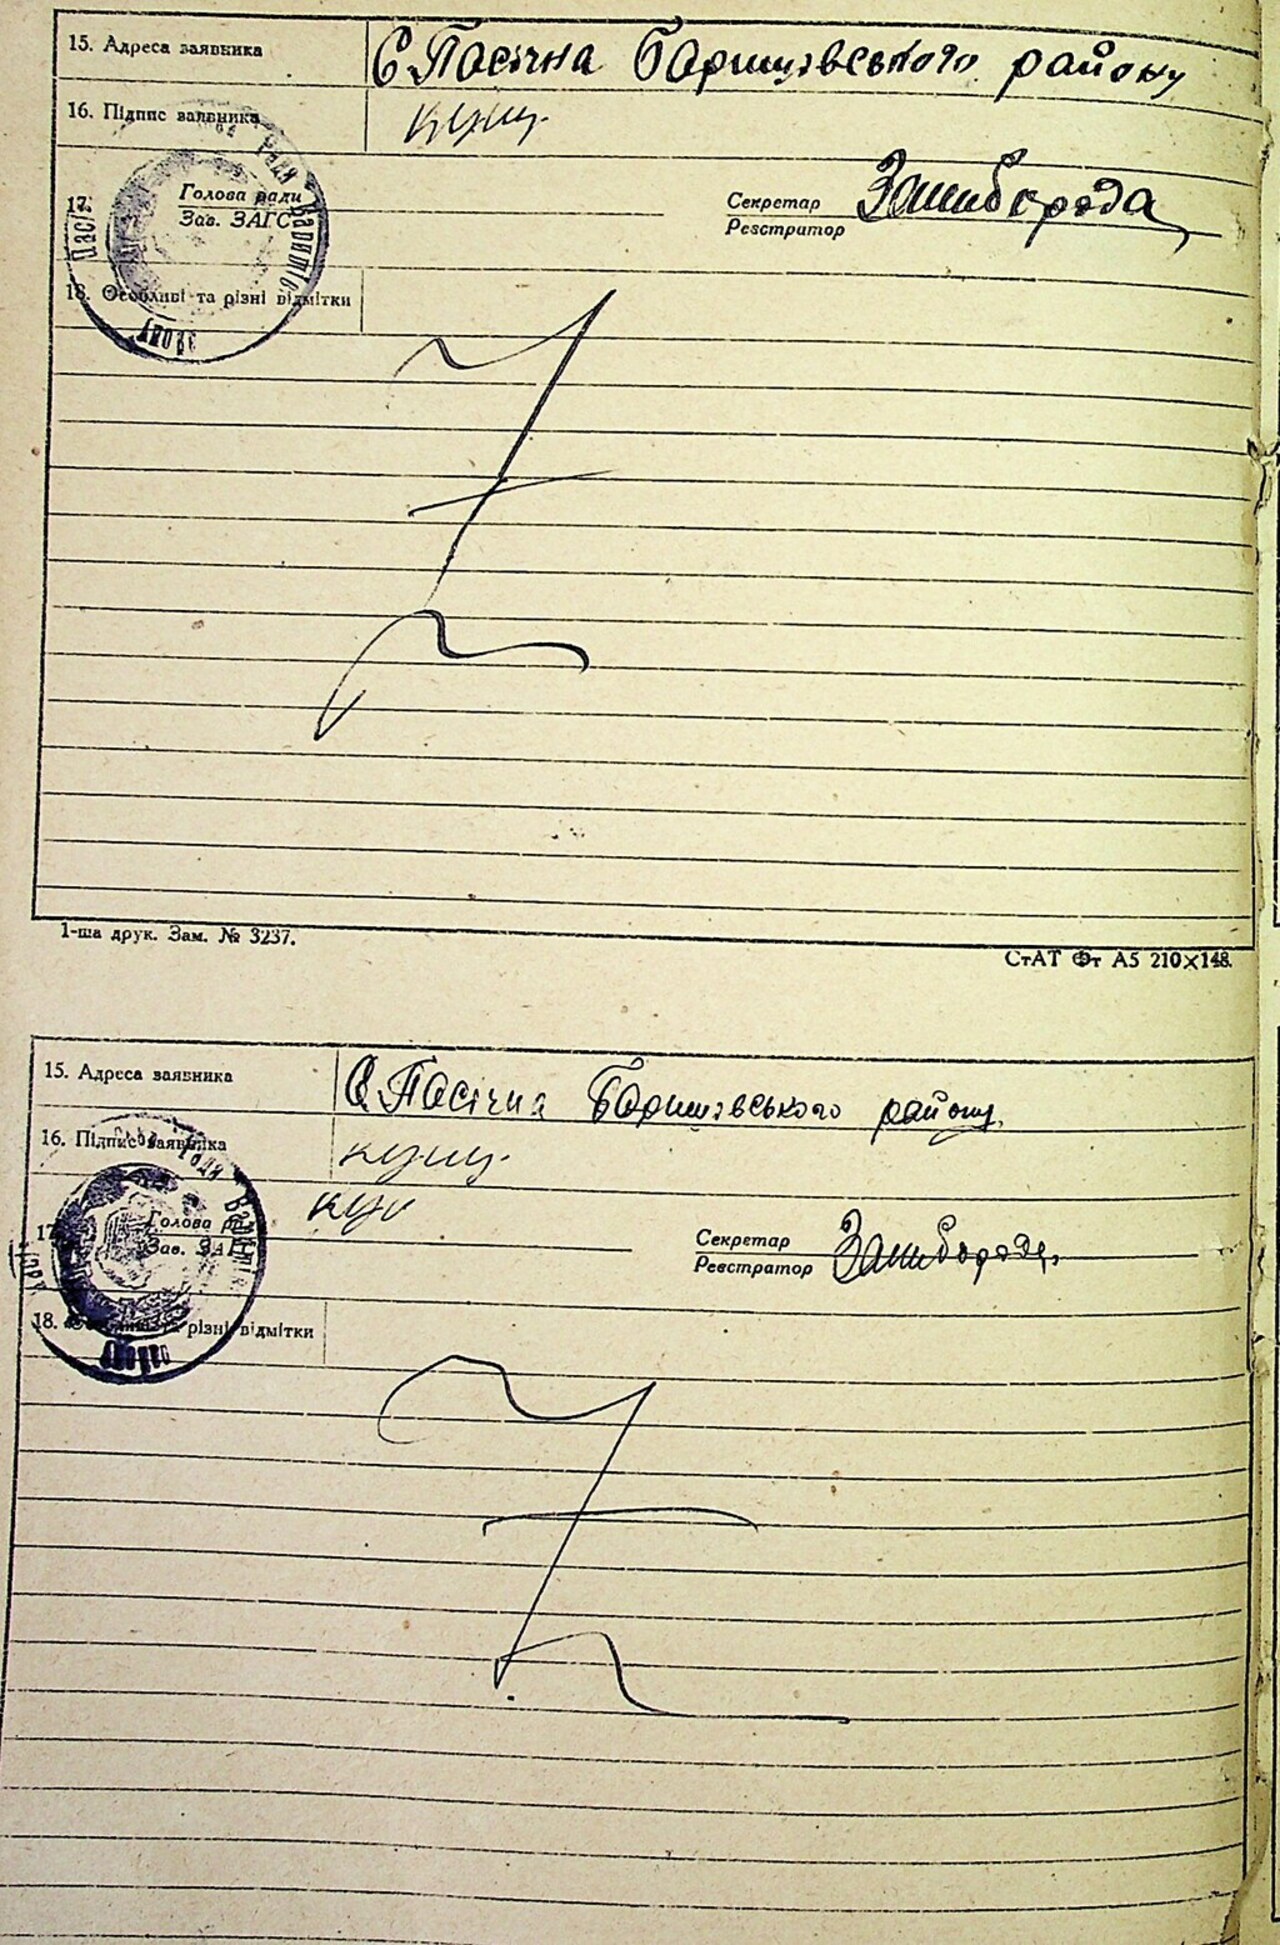 15. Адреса заявника С. Пасічна Баришівського району
16. Підпис заявника
17. Голова ради
Зав. ЗАГС
Секретар
Реєстратор
18. Особливі та різні відмітки
1-ша друк. Зам. № 3237.
СтАТ Фт А5 210×148.
15. Адреса заявника С. Пасічна Баришівського району
16. Підпис заявника
17. Голова ради
Зав. ЗАГС
Секретар
Реєстратор
18. Особливі та різні відмітки